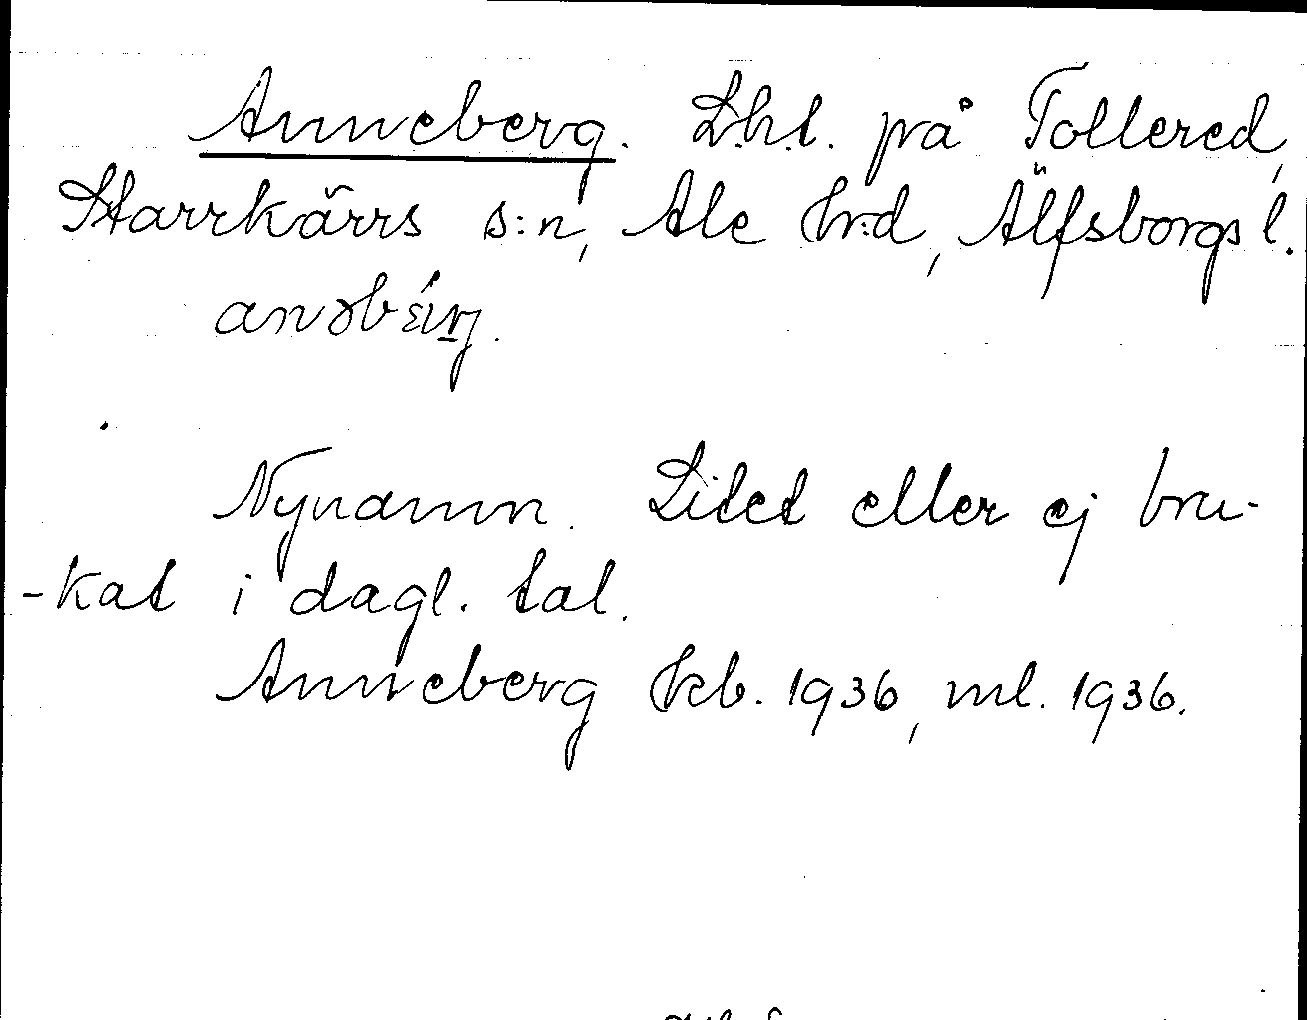 Anneberg. Lht. på Tollered,
Starrkärrs s:n, Ale hrd, Älfsborgs l.
Nynamn. Litet eller ej bru-
-kat i dagl. tal.
Anneberg kb. 1936, ml. 1936.